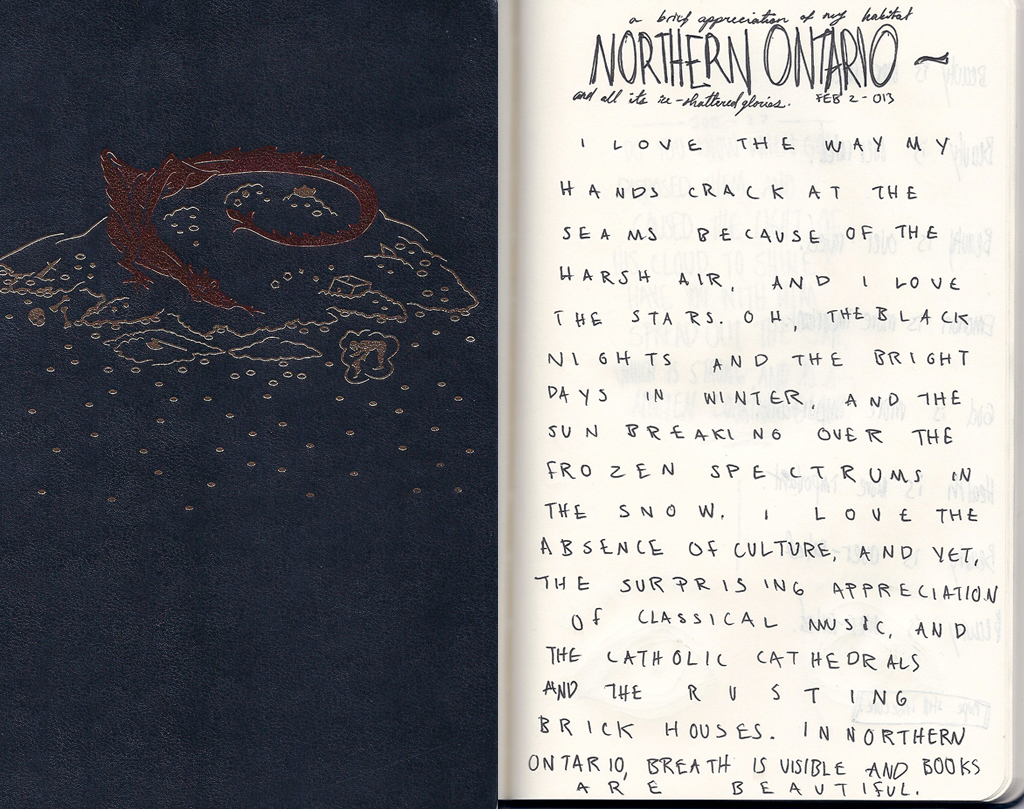 a brief appreciation of my habitat
NORTHERN ONTARIO ~
and all its re-shattered glories. FEB 2-013
I LOVE THE WAY MY
HANDS CRACK AT THE
SEAMS BECAUSE OF THE
HARSH AIR, AND I LOVE
THE STARS. OH, THE BLACK
NIGHTS AND THE BRIGHT
DAYS IN WINTER, AND THE
SUN BREAKING OVER THE
FROZEN SPECTRUMS IN
THE SNOW. I LOVE THE
ABSENCE OF CULTURE, AND YET,
THE SURPRISING APPRECIATION
OF CLASSICAL MUSIC, AND
THE CATHOLIC CATHEDRALS
AND THE RUSTING
BRICK HOUSES. IN NORTHERN
ONTARIO, BREATH IS VISIBLE AND BOOKS
ARE BEAUTIFUL.